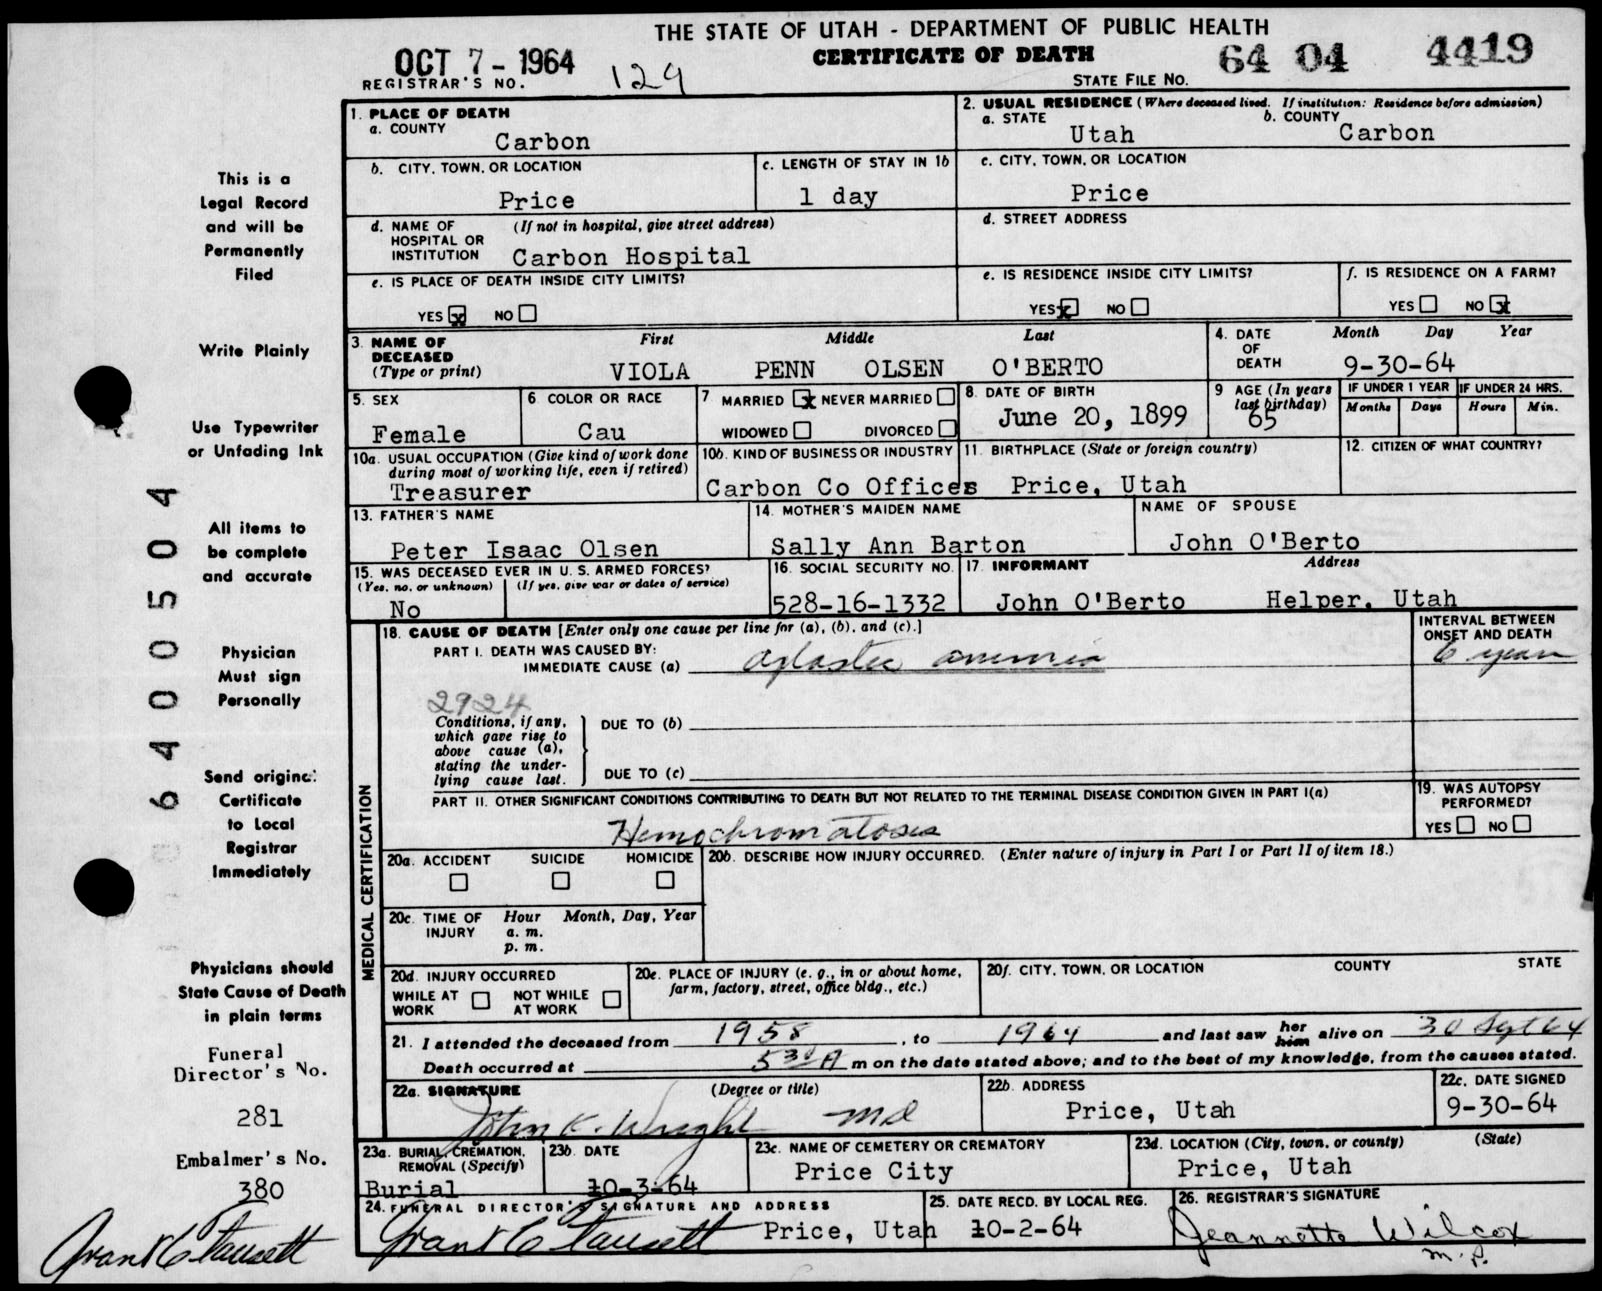 THE STATE OF UTAH - DEPARTMENT OF PUBLIC HEALTH
CERTIFICATE OF DEATH
OCT 7 - 1964
REGISTRAR'S NO. 129
STATE FILE NO. 64 04 4419
This is a
Legal Record
and will be
Permanently
Filed
Write Plainly
Use Typewriter
or Unfading Ink
All items to
be complete
and accurate
Physician
Must sign
Personally
Send original
Certificate
to Local
Registrar
Immediately
Physicians should
State Cause of Death
in plain terms
Funeral
Director's No.
281
Embalmer's No.
380
Grant C Fausett
6400504
1. PLACE OF DEATH
a. COUNTY
Carbon
2. USUAL RESIDENCE (Where deceased lived. If institution: Residence before admission)
a. STATE b. COUNTY
Utah Carbon
b. CITY, TOWN, OR LOCATION
Price
c. LENGTH OF STAY IN 1b
1 day
c. CITY, TOWN, OR LOCATION
Price
d. NAME OF (If not in hospital, give street address)
HOSPITAL OR
INSTITUTION Carbon Hospital
d. STREET ADDRESS
e. IS PLACE OF DEATH INSIDE CITY LIMITS?
YES x NO
e. IS RESIDENCE INSIDE CITY LIMITS?
YES x NO
f. IS RESIDENCE ON A FARM?
YES NO x
3. NAME OF First Middle Last
DECEASED
(Type or print) VIOLA PENN OLSEN O'BERTO
4. DATE Month Day Year
OF
DEATH 9-30-64
5. SEX
Female
6 COLOR OR RACE
Cau
7 MARRIED x NEVER MARRIED
WIDOWED DIVORCED
8. DATE OF BIRTH
June 20, 1899
9 AGE (In years
last birthday)
65
IF UNDER 1 YEAR IF UNDER 24 HRS.
Months Days Hours Min.
10a. USUAL OCCUPATION (Give kind of work done
during most of working life, even if retired)
Treasurer
10b. KIND OF BUSINESS OR INDUSTRY
Carbon Co Offices
11. BIRTHPLACE (State or foreign country)
Price, Utah
12. CITIZEN OF WHAT COUNTRY?
13. FATHER'S NAME
Peter Isaac Olsen
14. MOTHER'S MAIDEN NAME
Sally Ann Barton
NAME OF SPOUSE
John O'Berto
15. WAS DECEASED EVER IN U. S. ARMED FORCES?
(Yes, no, or unknown) (If yes, give war or dates of service)
No
16. SOCIAL SECURITY NO.
528-16-1332
17. INFORMANT Address
John O'Berto Helper, Utah
MEDICAL CERTIFICATION
18. CAUSE OF DEATH [Enter only one cause per line for (a), (b), and (c).]
PART I. DEATH WAS CAUSED BY:
IMMEDIATE CAUSE (a) Aplastic anemia
INTERVAL BETWEEN
ONSET AND DEATH
6 years
2924
Conditions, if any,
which gave rise to
above cause (a),
stating the under-
lying cause last.
DUE TO (b)
DUE TO (c)
PART II. OTHER SIGNIFICANT CONDITIONS CONTRIBUTING TO DEATH BUT NOT RELATED TO THE TERMINAL DISEASE CONDITION GIVEN IN PART I(a)
Hemochromatosis
19. WAS AUTOPSY
PERFORMED?
YES NO
20a. ACCIDENT SUICIDE HOMICIDE
20b. DESCRIBE HOW INJURY OCCURRED. (Enter nature of injury in Part I or Part II of item 18.)
20c. TIME OF Hour Month, Day, Year
INJURY a. m.
p. m.
20d. INJURY OCCURRED
WHILE AT NOT WHILE
WORK AT WORK
20e. PLACE OF INJURY (e. g., in or about home,
farm, factory, street, office bldg., etc.)
20f. CITY, TOWN, OR LOCATION COUNTY STATE
21. I attended the deceased from 1958, to 1964 and last saw her him alive on 30 Sept 64
Death occurred at 5 30 A m on the date stated above; and to the best of my knowledge, from the causes stated.
22a. SIGNATURE (Degree or title)
John K. Wright MD
22b. ADDRESS
Price, Utah
22c. DATE SIGNED
9-30-64
23a. BURIAL, CREMATION,
REMOVAL (Specify)
Burial
23b. DATE
10-3-64
23c. NAME OF CEMETERY OR CREMATORY
Price City
23d. LOCATION (City, town, or county) (State)
Price, Utah
24. FUNERAL DIRECTOR'S SIGNATURE AND ADDRESS
Grant C Fausett Price, Utah
25. DATE RECD. BY LOCAL REG.
10-2-64
26. REGISTRAR'S SIGNATURE
Jeannette Wilcox